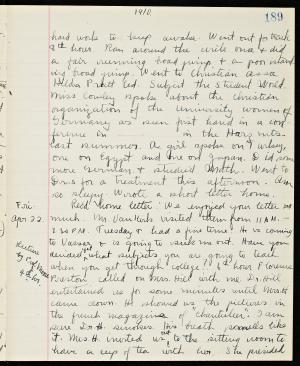 1910
189
hard work to keep awake. Went out for track
8th hour. Ran around the circle once & did
a fair running broad jump & a poor stand-
ing broad jump. Went to Christian Assn.
Hilda Pratt led. Subject the Student World.
Miss Conley spoke about the Christian
organization of the University women of
Germany as seen first hand in a con-
ference in in the Harz mts.
last summer. A girl spoke on
one on Egypt and one on Japan. I did some
more German & studied Math. Went to
Drs for a treatment this afternoon. Am
so sleepy. Wrote a short letter home.
Fri.
Apr 22.
Lecture
by Prof
4 & 8
Red home letter. We enjoyed your letter so
much. Mr. visited them from 11 A.M. -
7:30 P.M. Tuesday & had a fine time. He is coming
to Vassar & is going to look me out. Have you
decided yet what subjects you are going to teach
when you get through college? 6th hour Florence
Preston called on Mrs. Hill with me. Dr. Hill
entertained us for some minutes until Mrs. H
came down. He showed us the pictures in
the french magazine of "Chantecler". I am
sure Dr. H. smokes. His breath smells like
it. Mrs. H. invited us out to the sitting room to
have a cup of tea with her. She presided